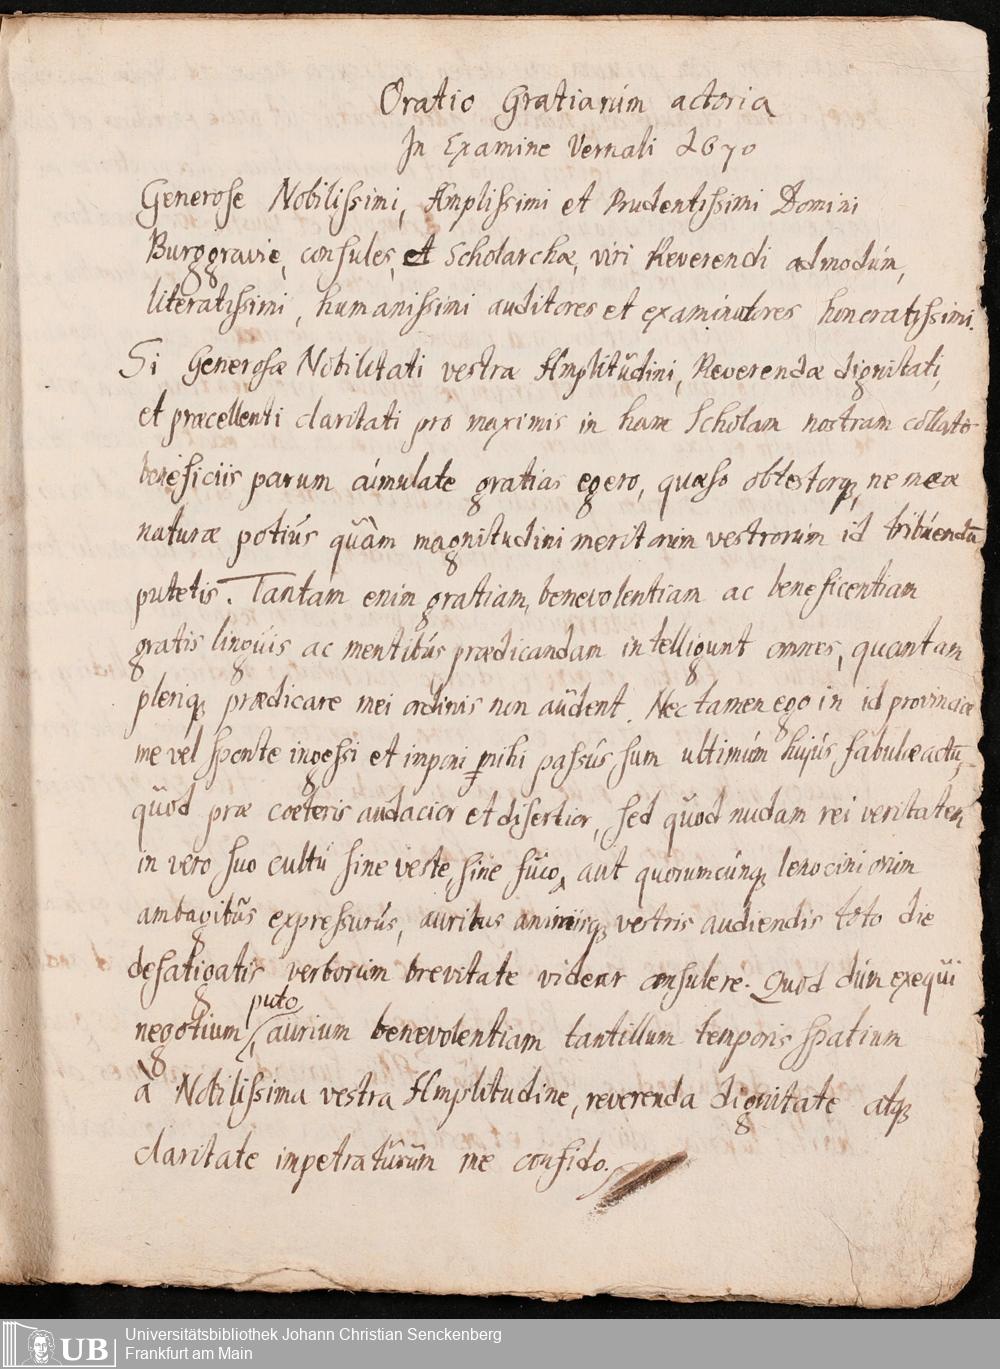 Oratio Gratiarúm actoria
In Examine Vernali 1670
Generose Nobilissimi, Amplissimi et Prudentissimi Domini
Burggravie, consules, et Scholarchæ, viri Reverendi admodúm,
literatissimi, humanissimi auditores et examinatores honoratissimi.
Si Generosæ Nobilitati vestræ Amplitŭdini, Reverendæ dignitati,
et præcellenti claritati pro maximis in hanc Scholam nostram collatis
beneficiis parum cúmulate gratias egero, quæso obtestorq, ne meæ
naturæ potiús quàm magnitudini meritorúm vestrorúm id tribúendū
putetis. Tantam enim gratiam, benevolentiam ac beneficentiam
gratis lingúis ac mentibús prædicandam intelligunt omnes, quantam
pleriq prædicare mei ordinis non aŭdent. Nec tamen ego in id provinciæ
me vel sponte ingessi et imponi mihi passús sum ultimúm hujús fabulæ actū,
qŭod præ cœteris audacior et disertior, sed qŭod nudam rei veritatem
in vero suo cultŭ sine veste, sine fŭco, aut quorumcúnq lenociniorúm
ambagibŭs expressurŭs, auribus animisq vestris audiendis toto die
defatigatis verborúm brevitate videar consulere. Quod dúm exequi
puto
negotium, aurium benevolentiam tantillum temporis spatium
à Nobilissima vestra Amplitudine, reverenda dignitate atq
claritate impetratŭrŭm me confido.
Universitätsbibliothek Johann Christian Senckenberg
Frankfurt am Main
UB